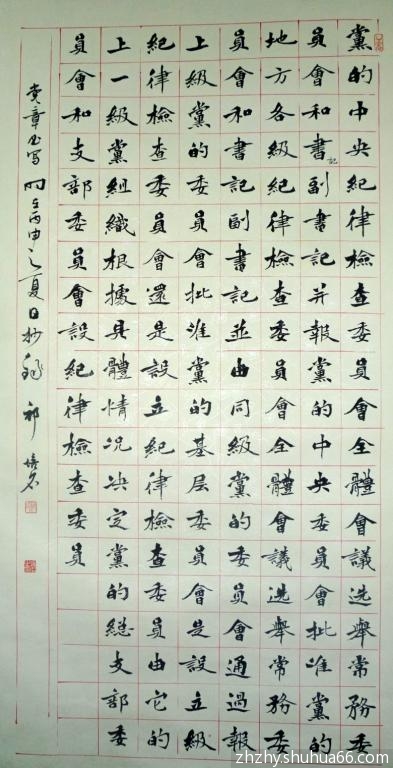 黨的中央紀律檢查委員會全體會議選舉常務委
員會和書記副書記并報黨的中央委員會批准黨的
地方各級紀律檢查委員會全體會議選舉常務委
員會和書記副書記並由同級黨的委員會通過報
上級黨的委員會批准黨的基层委員會是設立級
紀律檢查委員會還是設立紀律檢查委員由它的
上一級黨組織根據具體情况决定黨的総支部委
員會和支部委員會設紀律檢查委員
党章书写时在丙申之夏日抄錄 祁
zhzhy.shuhua66.com